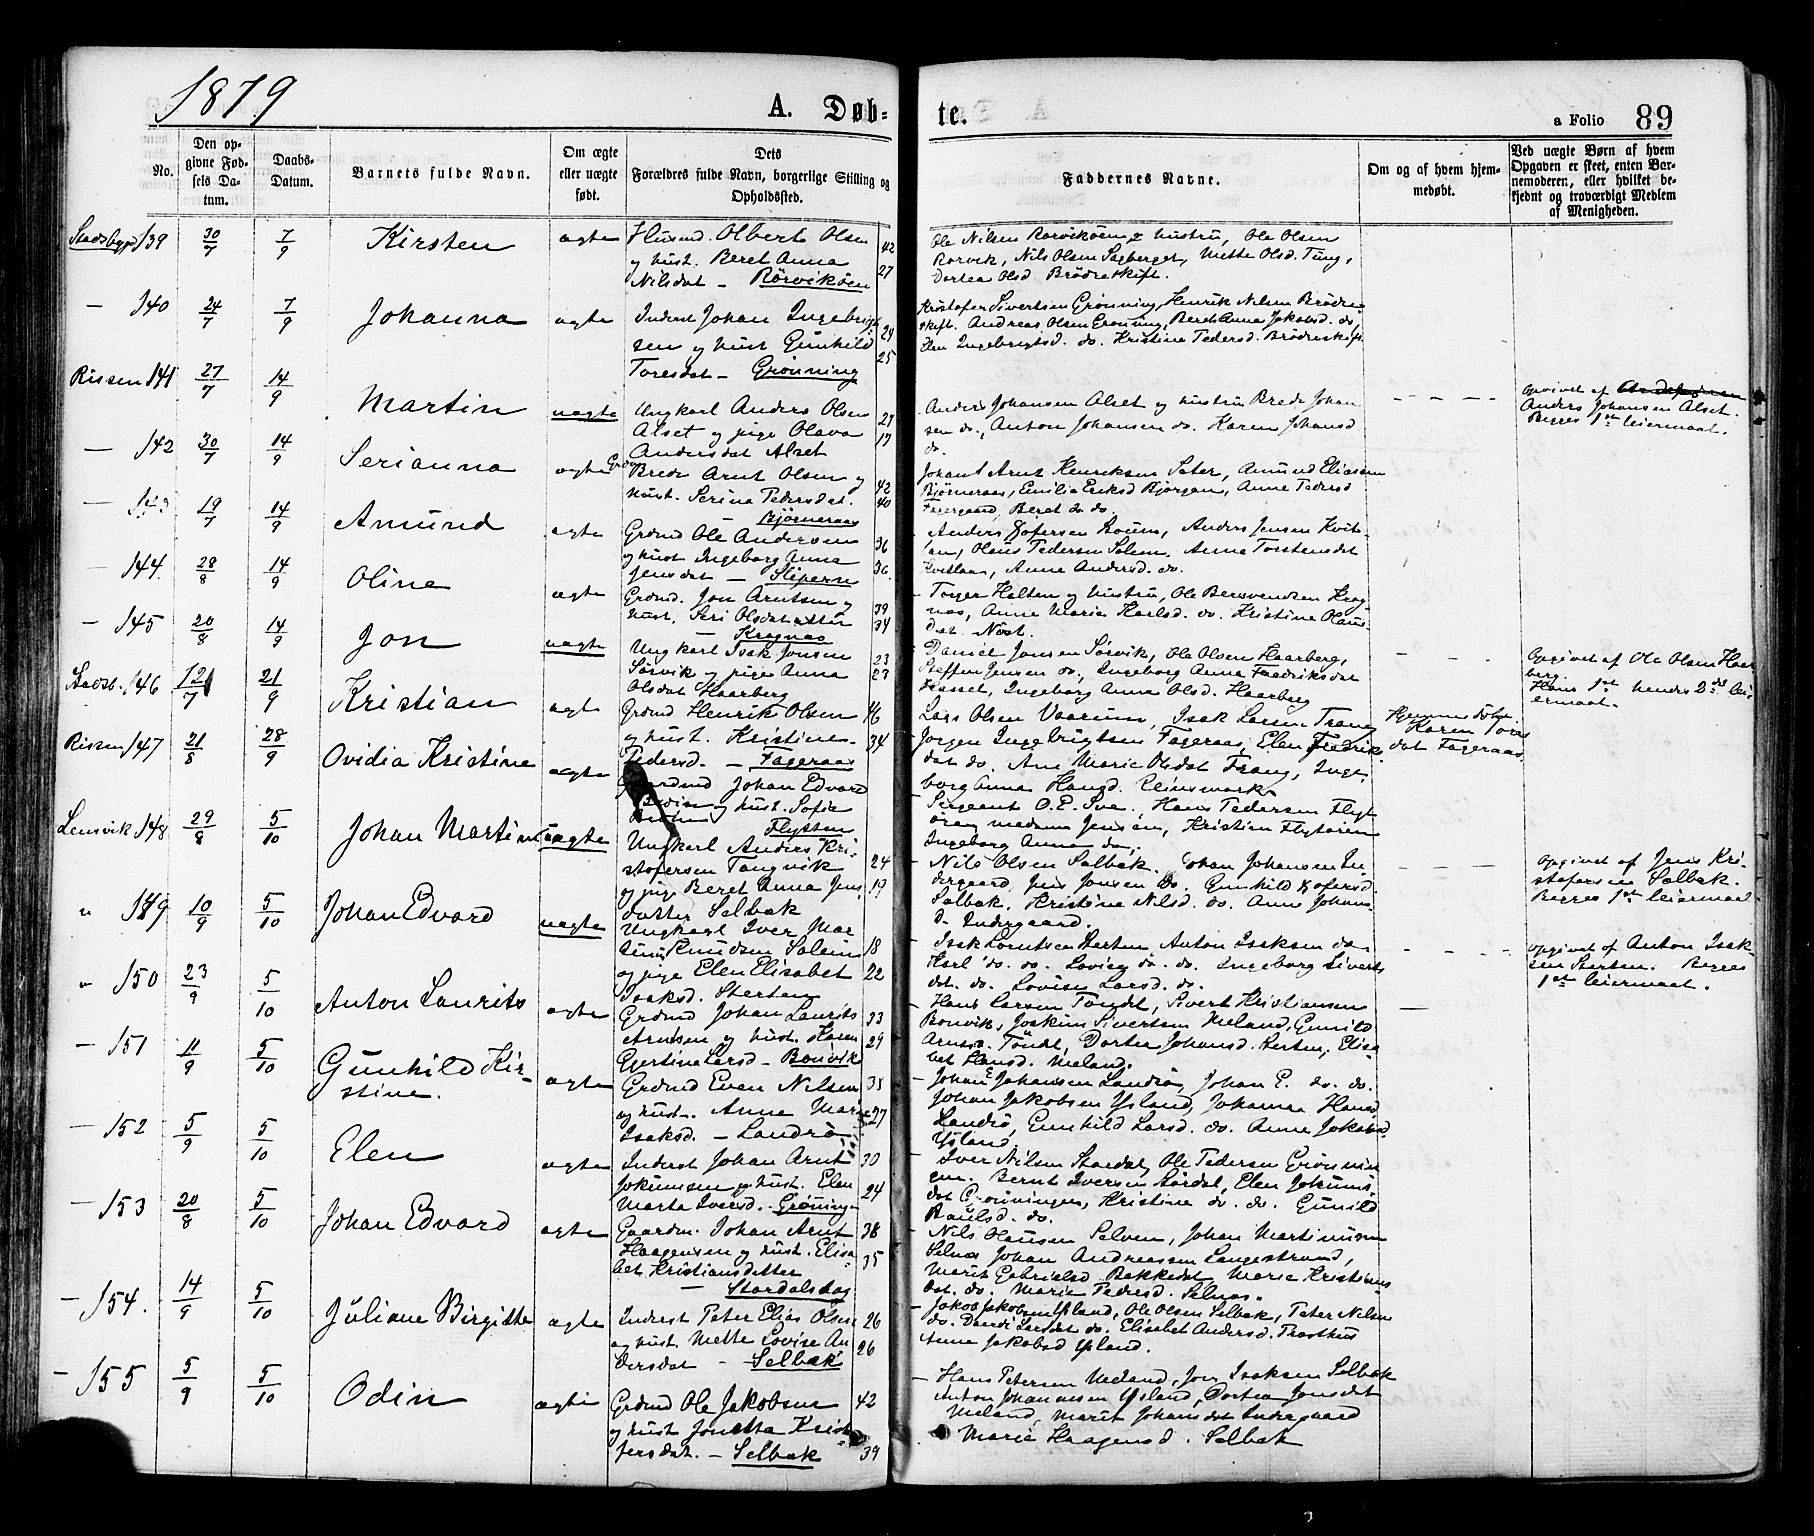 1879
A. Døb-
te.
a Folio 89
No.
Den op-
givne Fød-
sels Da-
tum.
Daabs-
Datum.
Barnets fulde Navn.
Om ægte
eller uægte
født.
Dets
Forældres fulde Navn, borgerlige Stilling og
Opholdssted.
Faddernes Navne.
Om og af hvem hjem-
medøbt.
Ved uægte Børn af hvem
Opgaven er skeet, enten Bar-
nemoderen, eller hvilket be-
kjendt og troværdigt Medlem
af Menigheden.
Stadsbygd 139 30/7 7/9 Kirsten ægte
Husmd. Olbert Olsen 42
og hust. Beret Anna 27
Nilsdat - Rörviköen
Ole Nilsen Rorviköen & hustru, Ole Olsen
Rorvik, Nils Olsen Sagberget, Mette Olsd. Tung,
Dortea Olsd. Brödreskift.
— 140 24/7 7/9 Johanna ægte
Inderst Johan Ingebrigt- 29
sen og hust Gunhild 25
Toresdat - Grönning
Kristofer Sivertsen Grønning, Henrik Nilsen Brødre
skift. Andreas Olsen Grønning, Beret Anna Jakobsd. do,
Elen Ingebrigtsd. do. Kristine Pedersd. Brödreskift
Rissen 141 27/7 14/9 Martin uægte
Ungkarl Anders Olsen 27
Alset og pige Olava 17
Andersdat Alset
Anders Johansen Alset og hustru Brede Johan
sen do., Anton Johansen do. Karen Johansd
do.
Opgivet af
Anders Johansen Alset.
Begges 1ste leiermaal.
— 142 30/7 14/9 Serianna ægte
Brede Arnt Olsen og 42
hust. Serina Pedersdat. 40
- Björneraas
Johan Arnt Henriksen Sæter, Amund Eliasen
Bjørneraas, Emilie Eriksd Bjørgan, Anne Pedersd
Fagergaard, Beret do do.
— 143 19/7 14/9 Amund ægte
Grdmd Ole Andersen 36
og hust Ingeborg Anna 36.
Jensdat - Sliperne
Anders Jensen Kvit-
laan, Olaus Pedersen Solem. Anna Torstensdat
Kvitlaan, Anne Andersd. do.
— 144. 28/8 14/9 Oline ægte
Grdmd. Jon Arntsen og 39
hust. Seri Olsdatter 34
- Kragnæs
- Torger Halten og hustru, Ole Bersvendsen Krag
næs, Anne Marie Karlsd. do. Kristine Olaus-
dat Nøst.
— 145 20/8 14/9 Jon uægte
Ungkarl Isak Jonsen 23
Sørvik og pige Anna 23
Olsdat Haarberg
- Daniel Jonsen Sørvik, Ole Olsen Haarberg,
Steffen Jensen do, Ingeborg Anna Fredriksdat
Hasset, Ingeborg Anna Olsd. Haarberg
Opgivet af Ole Olsen Haar
berg.
Hans 1ste hendes 2det lei
ermaal.
Stadsb. 146 12/7 21/9 Kristian ægte
Grdmd Henrik Olsen 46
og hust. Kristine 34
Pedersd. - Fageraas
Lars Olsen Vaarum, Isak Larsen Frang
Jørgen Ingebrigtsen Fageraas, Elen Fredrik
dat do. Ane Marie Olsdat Frang, Inge
borg Anna Haugd. Reinsmark.
Hjemmedøbt
Karen Tores
dat Fageraas
Rissen 147 21/8 28/9 Ovidia Kristine ægte
Gaardmd Johan Edvard
og hust. Sofie
Flytten
- Sergeant O. E. Sve. Hans Pedersen Flyt
ören, madame Jensen, Kristian Flytören
Ingeborg Anna do,
Lensvik 148 29/8 5/10 Johan Martin uægte
Ungkarl Anders Kri- 24
stofersen Tangvik
og pige Beret Anna Jens 19
datter Selbæk
- Nils Olsen Selbæk. Johan Johansen In
dergaard, Jens Jonsen do. Gunhild Kofersd.
Selbæk. Kristine Nilsd. do. Anne Johans
d. Indergaard.
Opgivet af Jens Kri-
stofersen Selbæk.
Begges 1ste leiermaal
" 149 10/9 5/10 Johan Edvard uægte
Ungkarl Iver Mar
tinus Knudsen Solem 18
og pige Elen Elisabet 22
Isaksd. Sterten
- Isak Lorentsen Sterten Anton Isaksen do
Karl do. do. Lovise do. do. Ingeborg Siverts
dat. do. Lovise Larsd. do.
Opgivet af Anton Isak
sen Sterten. Begges
1ste leiermaal.
" 150 23/9 5/10 Anton Laurits ægte
Grdmd Johan Laurits 33
Arntsen og hust. Karen 29
Gjertine Larsd - Bonvik
- Hans Larsen Töndt, Sivert Kristiansen
Bonvik, Joakim Sivertsen Meland, Gunild
Arntsd. Töndt, Dortea Johansd. Sterten, Elisa
bet Hansd. Meland.
— 151 11/9 5/10 Gunhild Kir-
stine. ægte
Grdmd Even Nilsen 35
og hust. Anne Marie 27
Isaksd. - Landrø
- Johan Johansen Landrø, Johan E. do. do.
Johan Jakobsen Ysland, Johanna Hansd
Landrø, Gunhild Larsd. do. Anne Jakobsd
Ysland.
— 152 5/9 5/10 Elen ægte
Inderst Johan Arnt 30
Jokumsen og hust. Elen 24
Marta Iversd. - Grøning
- Iver Nilsen Stordal, Ole Pedersen Grønnin
gen. Bernt Iversen Stordal, Elen Jokums
dat Grønningen, Kristine do. do. Gunild
Paulsd. do.
— 153 20/8 5/10 Johan Edvard ægte
Gaardm. Johan Arnt 38
Haagensen og hust. Elisa 35
bet Kristiansdatter
- Stordalsdag
- Nils Olausen Selven, Johan Martinusen
Selnæs Johan Andreassen Langestrand,
Marit Gabrielsd Bakkedat Marie Kristians
dat. do. Marie Pedersd. Selnæs.
— 154. 14/9 5/10 Juliane Birgitte ægte
Inderst Peter Elias Olsen 26
og hust. Mette Lovise An 26
dersdat - Selbæk
- Jakob Jakobsen Ysland, Ole Olsen Selbæk, Peter Nilsen
do. Larsdat do. Elisabet Andersd. Prosthus
Anne Jakobsd Ysland.
— 155 5/9 5/10 Odin ægte
Grdmd Ole Jakobsen 42
og hust Jonetta Krist
fersdat. - Selbæk 39
- Hans Petersen Meland, Jon Isaksen Selbæk
Anton Johannesen Ysland, Dortea Jonsdat
Meland, Marit Johansdat Indergaard
Marie Haagensd. Selbæk